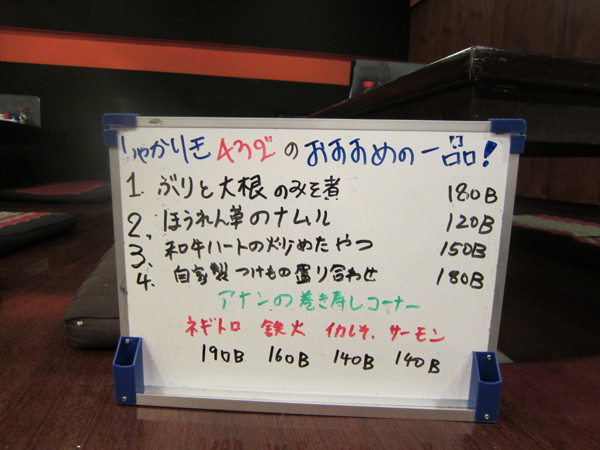 しゃかりき432"のおすすめの一品!
1. ぶりと大根のみそ煮 180B
2. ほうれん草のナムル 120B
3. 和牛ハートの炒めたやつ 150B
4. 自家製つけもの盛り合わせ 180B
アナンの巻き寿しコーナー
ネギトロ 鉄火 イカしそ、サーモン
190B 160B 140B 140B